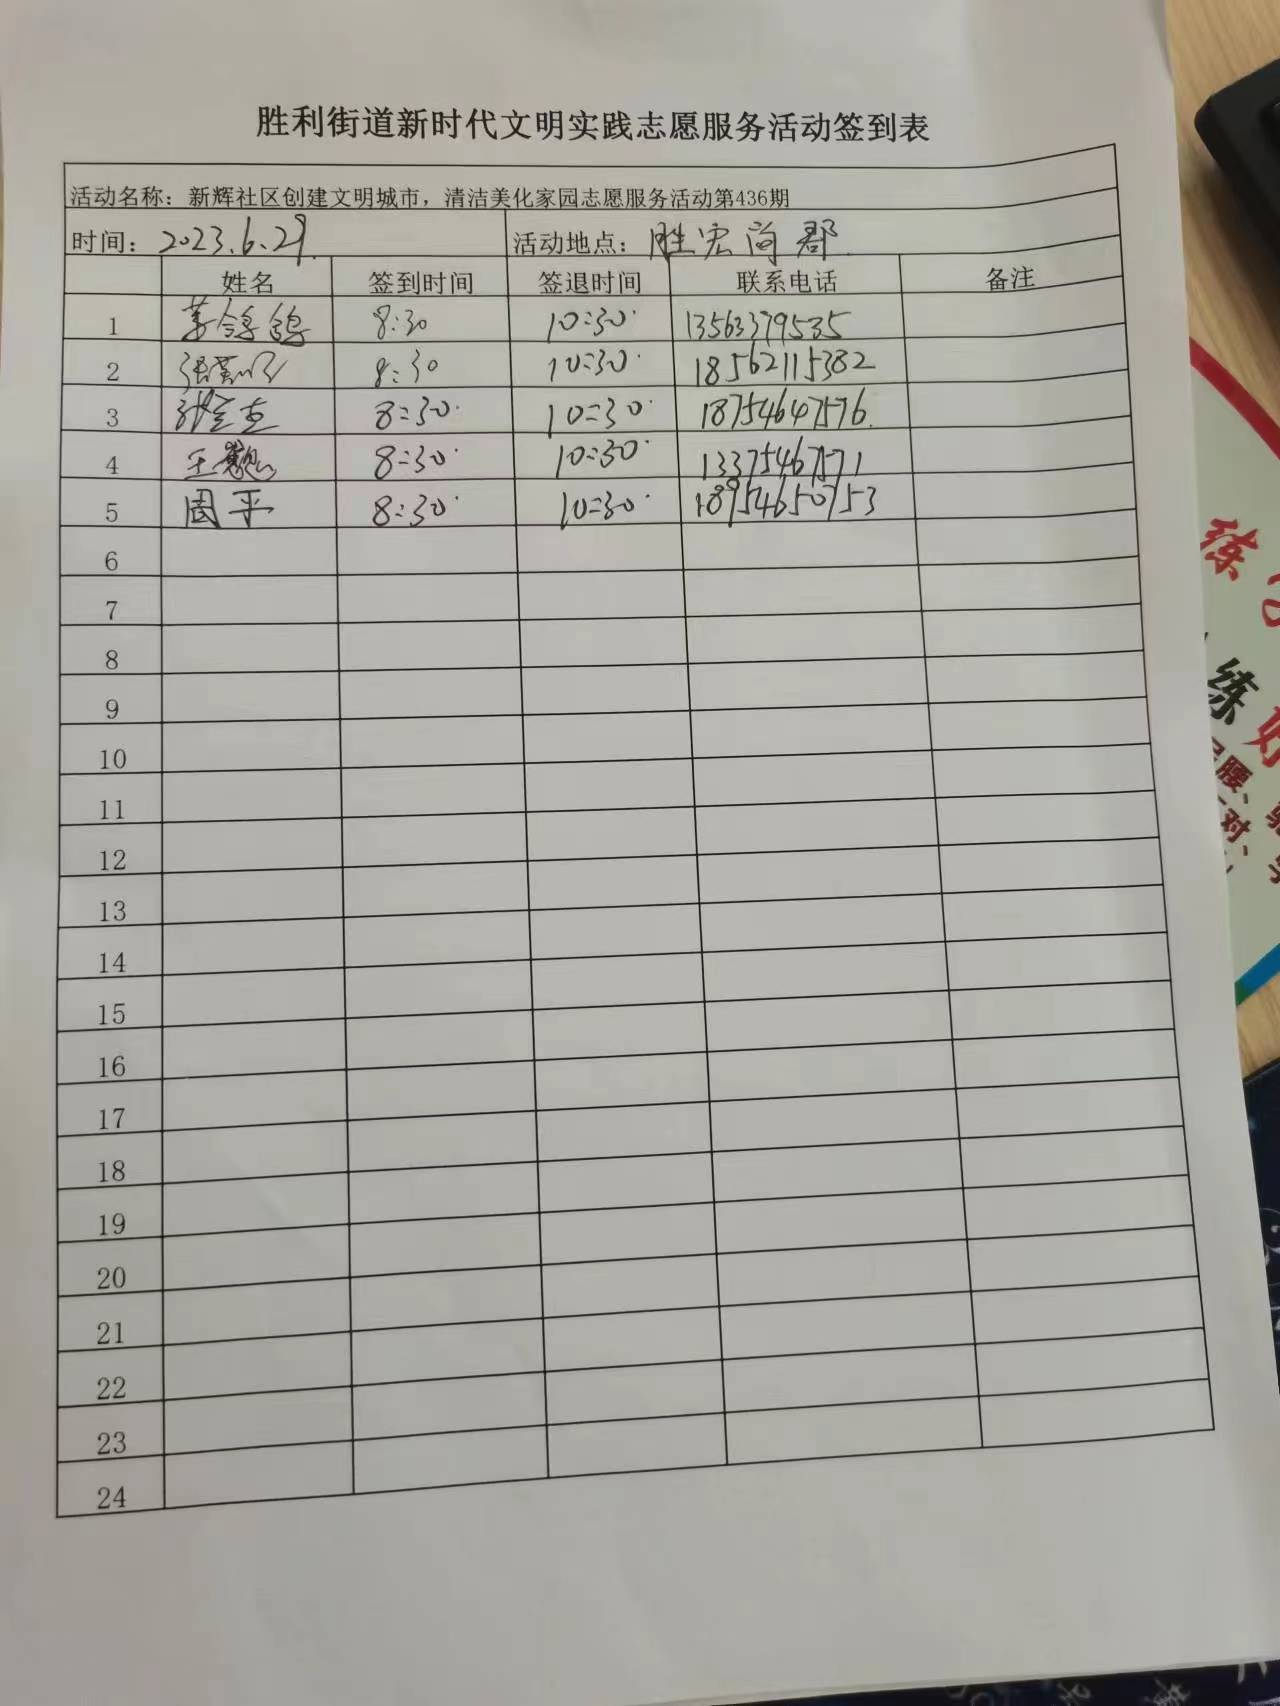 胜利街道新时代文明实践志愿服务活动签到表
活动名称：新辉社区创建文明城市，清洁美化家园志愿服务活动第436期
时间：2023.6.29. 活动地点：胜宏尚郡.
姓名 签到时间 签退时间 联系电话 备注
1 8:30 10:30 13563379535
2 张 8:30 10:30 18562115382
3 8:30 10:30 18754647576
4 王 8:30 10:30 13375467171
5 周平 8:30 10:30 18954650753
6
7
8
9
10
11
12
13
14
15
16
17
18
19
20
21
22
23
24
练
练好
腰、
对、